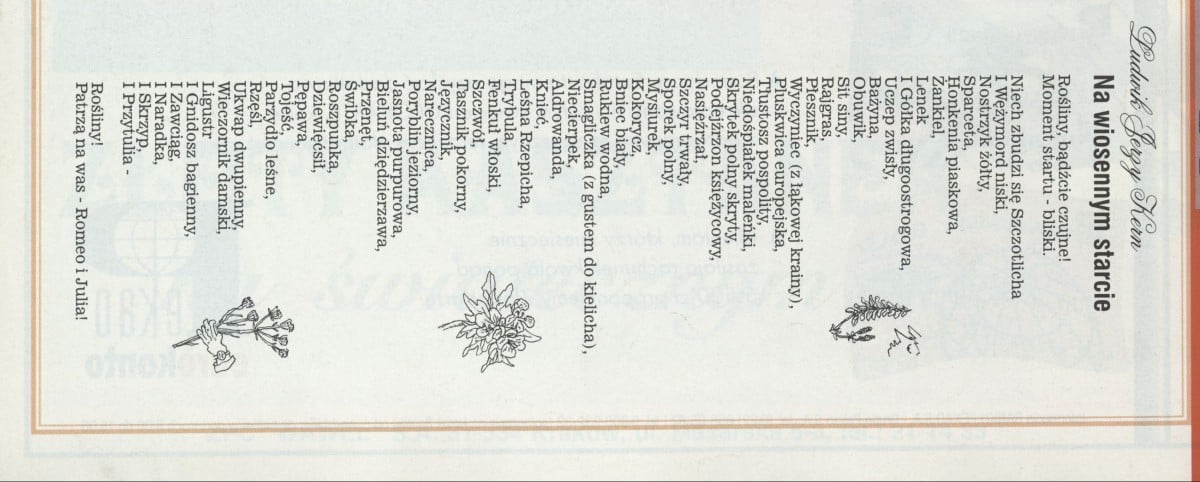 Ludwik Jerzy Kern
Na wiosennym starcie
Rośliny, bądźcie czujne!
Moment startu - bliski.
Niech zbudzi się Szczotlicha
I Wężymord niski,
Nostrzyk żółty,
Sparceta,
Honkenia piaskowa,
Żankiel,
Lenek
I Gółka długoostrogowa,
Uczep zwisły,
Bażyna,
Obuwik,
Sit siny,
Rajgras,
Płesznik,
Wyczyniec (z łąkowej krainy),
Pluskwica europejska,
Tłustosz pospolity,
Niedośpiałek maleńki,
Skrytek polny skryty,
Podejźrzon księżycowy,
Nasięźrzał,
Szczyr trwały,
Sporek polny,
Mysiurek,
Kokorycz,
Bniec biały,
Rukiew wodna,
Smagliczka (z gustem do kielicha),
Niecierpek,
Aldrowanda,
Knieć,
Leśna Rzepicha,
Trybula,
Fenkuł włoski,
Szczwół,
Tasznik pokorny,
Języcznik,
Narecznica,
Poryblin jeziorny,
Jasnota purpurowa,
Bieluń dziędzierzawa,
Przenęt,
Świbka,
Roszpunka,
Dziewięćsił,
Pępawa,
Tojeść,
Parzydło leśne,
Rzęśl,
Ukwap dwupienny,
Wieczornik damski,
Ligustr
I Gnidosz bagienny,
I Zawciąg,
I Naradka,
I Skrzyp,
I Przytulia -
Rośliny!
Patrzą na was - Romeo i Julia!